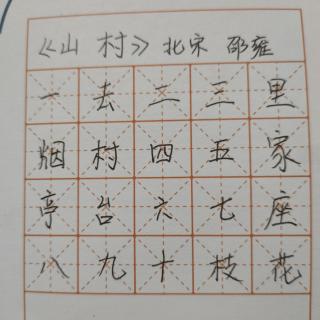 《山村》北宋 邵雍
一去二三里
烟村四五家
亭台六七座
八九十枝花